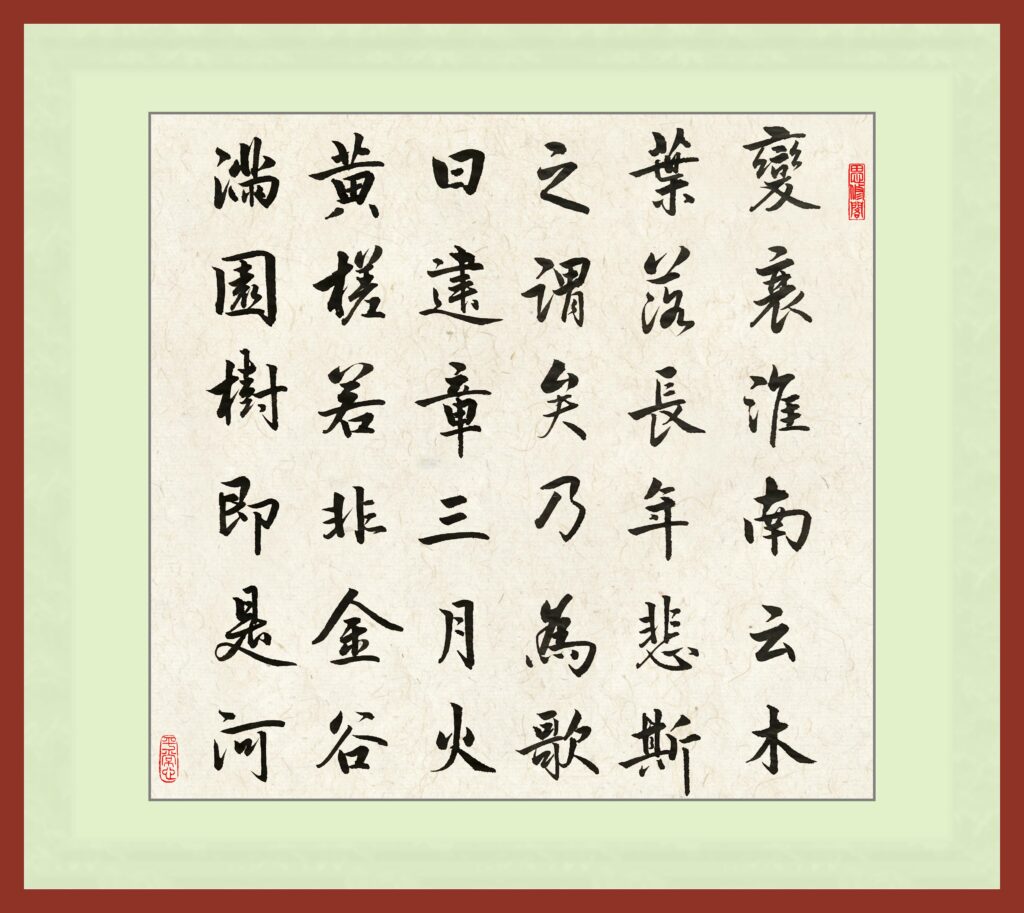 思補閣
變衰淮南云木
葉落長年悲斯
之謂矣乃為歌
曰建章三月火
黃槎若非金谷
滿園樹即是河
平常心